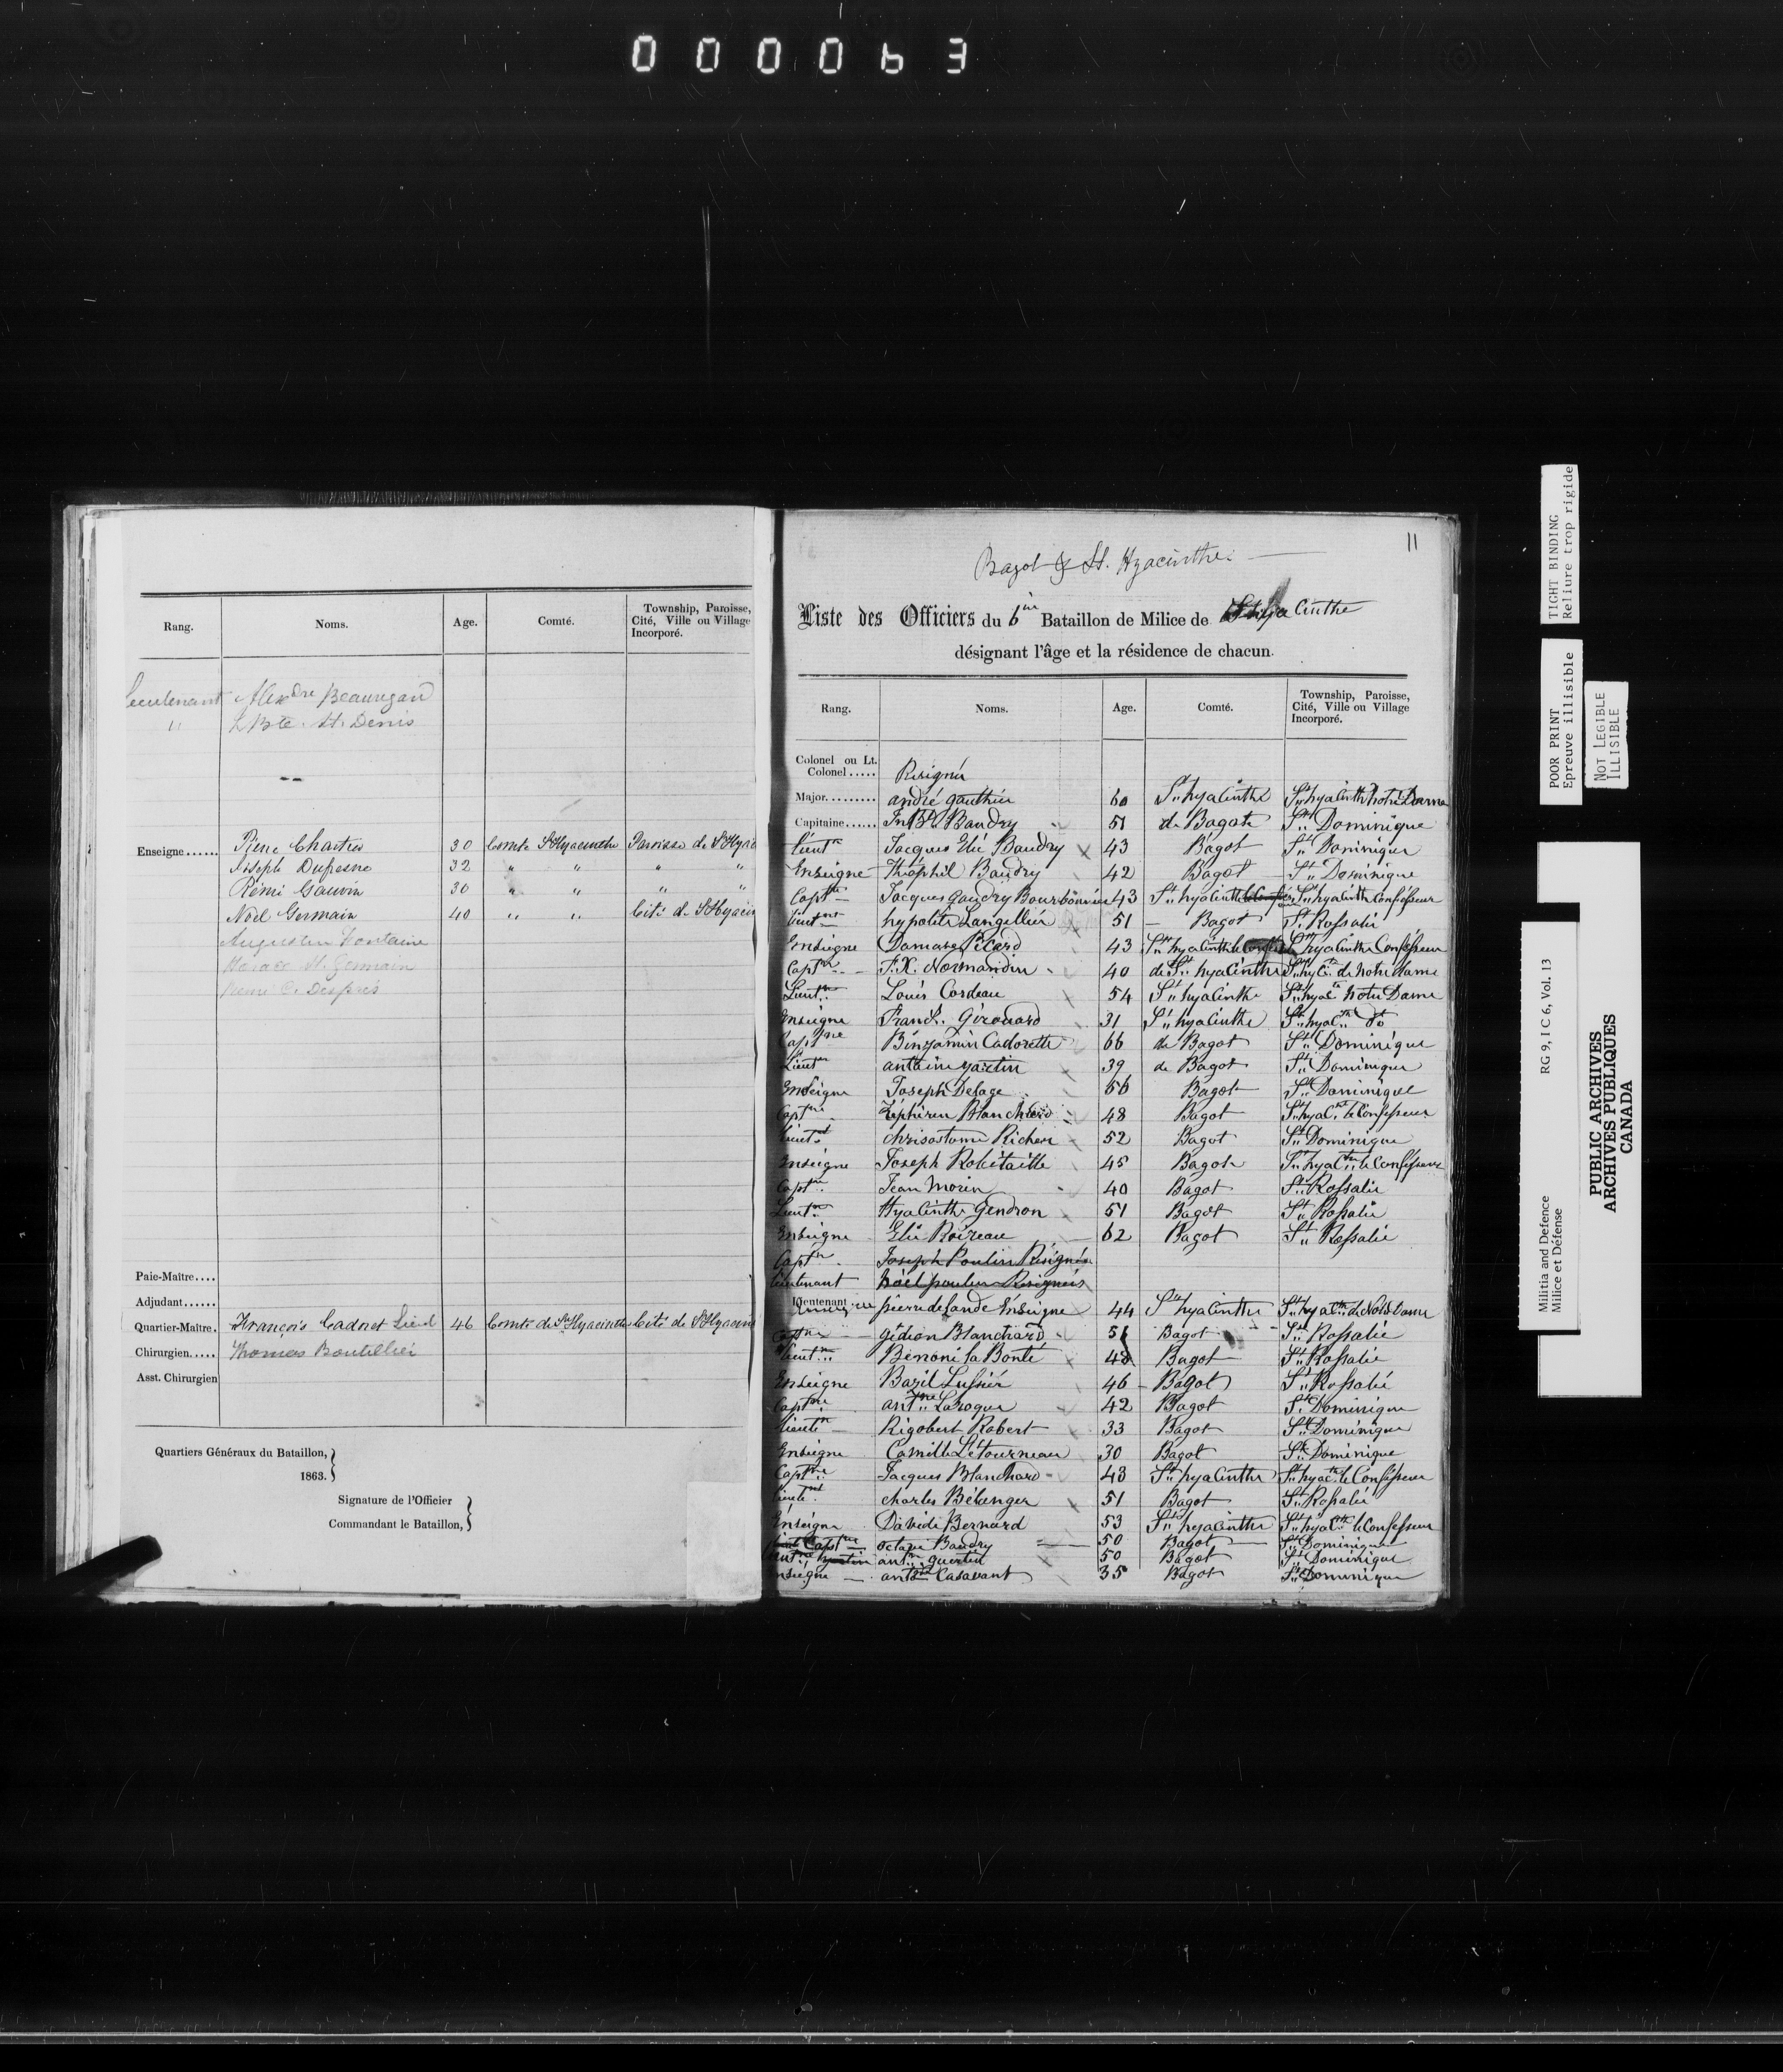 000063
Rang. Noms. Age. Comté. Township, Paroisse, Cité, Ville ou Village Incorporé.
Lieutenant Alexdre Beauregard
" J. Bte. St. Denis
Enseigne...... Rene Chartier 30 Comté St Hyacinthe Paroisse de St Hyac
Joseph Dufresne 32 " " " "
Rémi Gauvin 30 " " " "
Noël Germain 40 " " Cité de St Hyacin
Augustin Fontaine
St. Germain
C. Després
Paie-Maître....
Adjudant......
Quartier-Maître. François Cadoret Lieut 46 Comté de St Hyacinthe Cité de St Hyacin
Chirurgien..... Thomas Boutellier
Asst. Chirurgien
Quartiers Généraux du Bataillon,
1863.
Signature de l'Officier
Commandant le Bataillon,
11
Bagot & St. Hyacinthe
Liste des Officiers du 6me Bataillon de Milice de St hyacinthe
désignant l'âge et la résidence de chacun.
Rang. Noms. Age. Comté. Township, Paroisse, Cité, Ville ou Village Incorporé.
Colonel ou Lt. Colonel..... Résignér
Major......... andré gauthier 60 St hyacinthe St hyacinth Notre Dame
Capitaine...... Jn Bte Baudry 51 de Bagot St Dominique
Lieut Jacques Elié Baudry 43 Bagot St Dominique
Enseigne Théophil Baudry 42 Bagot St Dominique
Capt Jacques Gaudry Bourbonnier 43 St hyacinth St hyacinth Confesseur
Lieut hypolite Langellier 51 Bagot St Rossalié
Enseigne Damase Picard 43 St hyacinth le St hyacinthe Confesseur
Capt F. X. Normandin 40 de St hyacinthe St hyc de notre dame
Lieut Louis Cordeau 54 St hyacinthe St hyac Notre Dame
Enseigne Franc. Girouard 31 St hyacinthe St hyac do
Capt Benjamin Cadorette 66 de Bagot St Dominique
Lieut antoine martin 39 de Bagot St Dominique
Enseigne Joseph Delage 56 Bagot St Dominique
Capt Zéphiren Blanchard 48 Bagot St hyac le Confesseur
Lieut chrisostome Richer 52 Bagot St Dominique
Enseigne Joseph Robitaille 45 Bagot St hyac le Confesseur
Capt Jean Morin 40 Bagot St Rossalie
Lieut Hyacinthe Gendron 51 Bagot St Rossalie
Enseigne Elie Roireau 62 Bagot St Rossalie
Capt Joseph Poulin Résignér
Lieutenant Noël poulin Résignér
Lieutenant Enseigne pierre delande Enseigne 44 St hyacinthe St hyac de Notre Dame
Capt gédion Blanchard 51 Bagot St Rossalie
Lieut Benoni la Bonté 48 Bagot St Rossalie
Enseigne Bazil Lussier 46 Bagot St Rossalié
Capt antne Laroque 42 Bagot St Dominique
Lieut Rigobert Robert 33 Bagot St Dominique
Enseigne Camille Létourneau 30 Bagot St Dominique
Capt Jacques Blanchard 43 St hyacinthe St hyac le Confesseur
Lieut charles Bélanger 51 Bagot St Rossalié
Enseigne Davide Bernard 53 St hyacinthe St hyac le Confesseur
Capt octave Baudry 50 Bagot St Dominique
Lieut antne quertin 50 Bagot St Dominique
Enseigne antoine Casavant 35 Bagot St Dominique
TIGHT BINDING
Reliure trop rigide
POOR PRINT
Epreuve illisible
NOT LEGIBLE
ILLISIBLE
Militia and Defence RG 9, I C 6, Vol. 13
Milice et Défense
PUBLIC ARCHIVES
ARCHIVES PUBLIQUES
CANADA